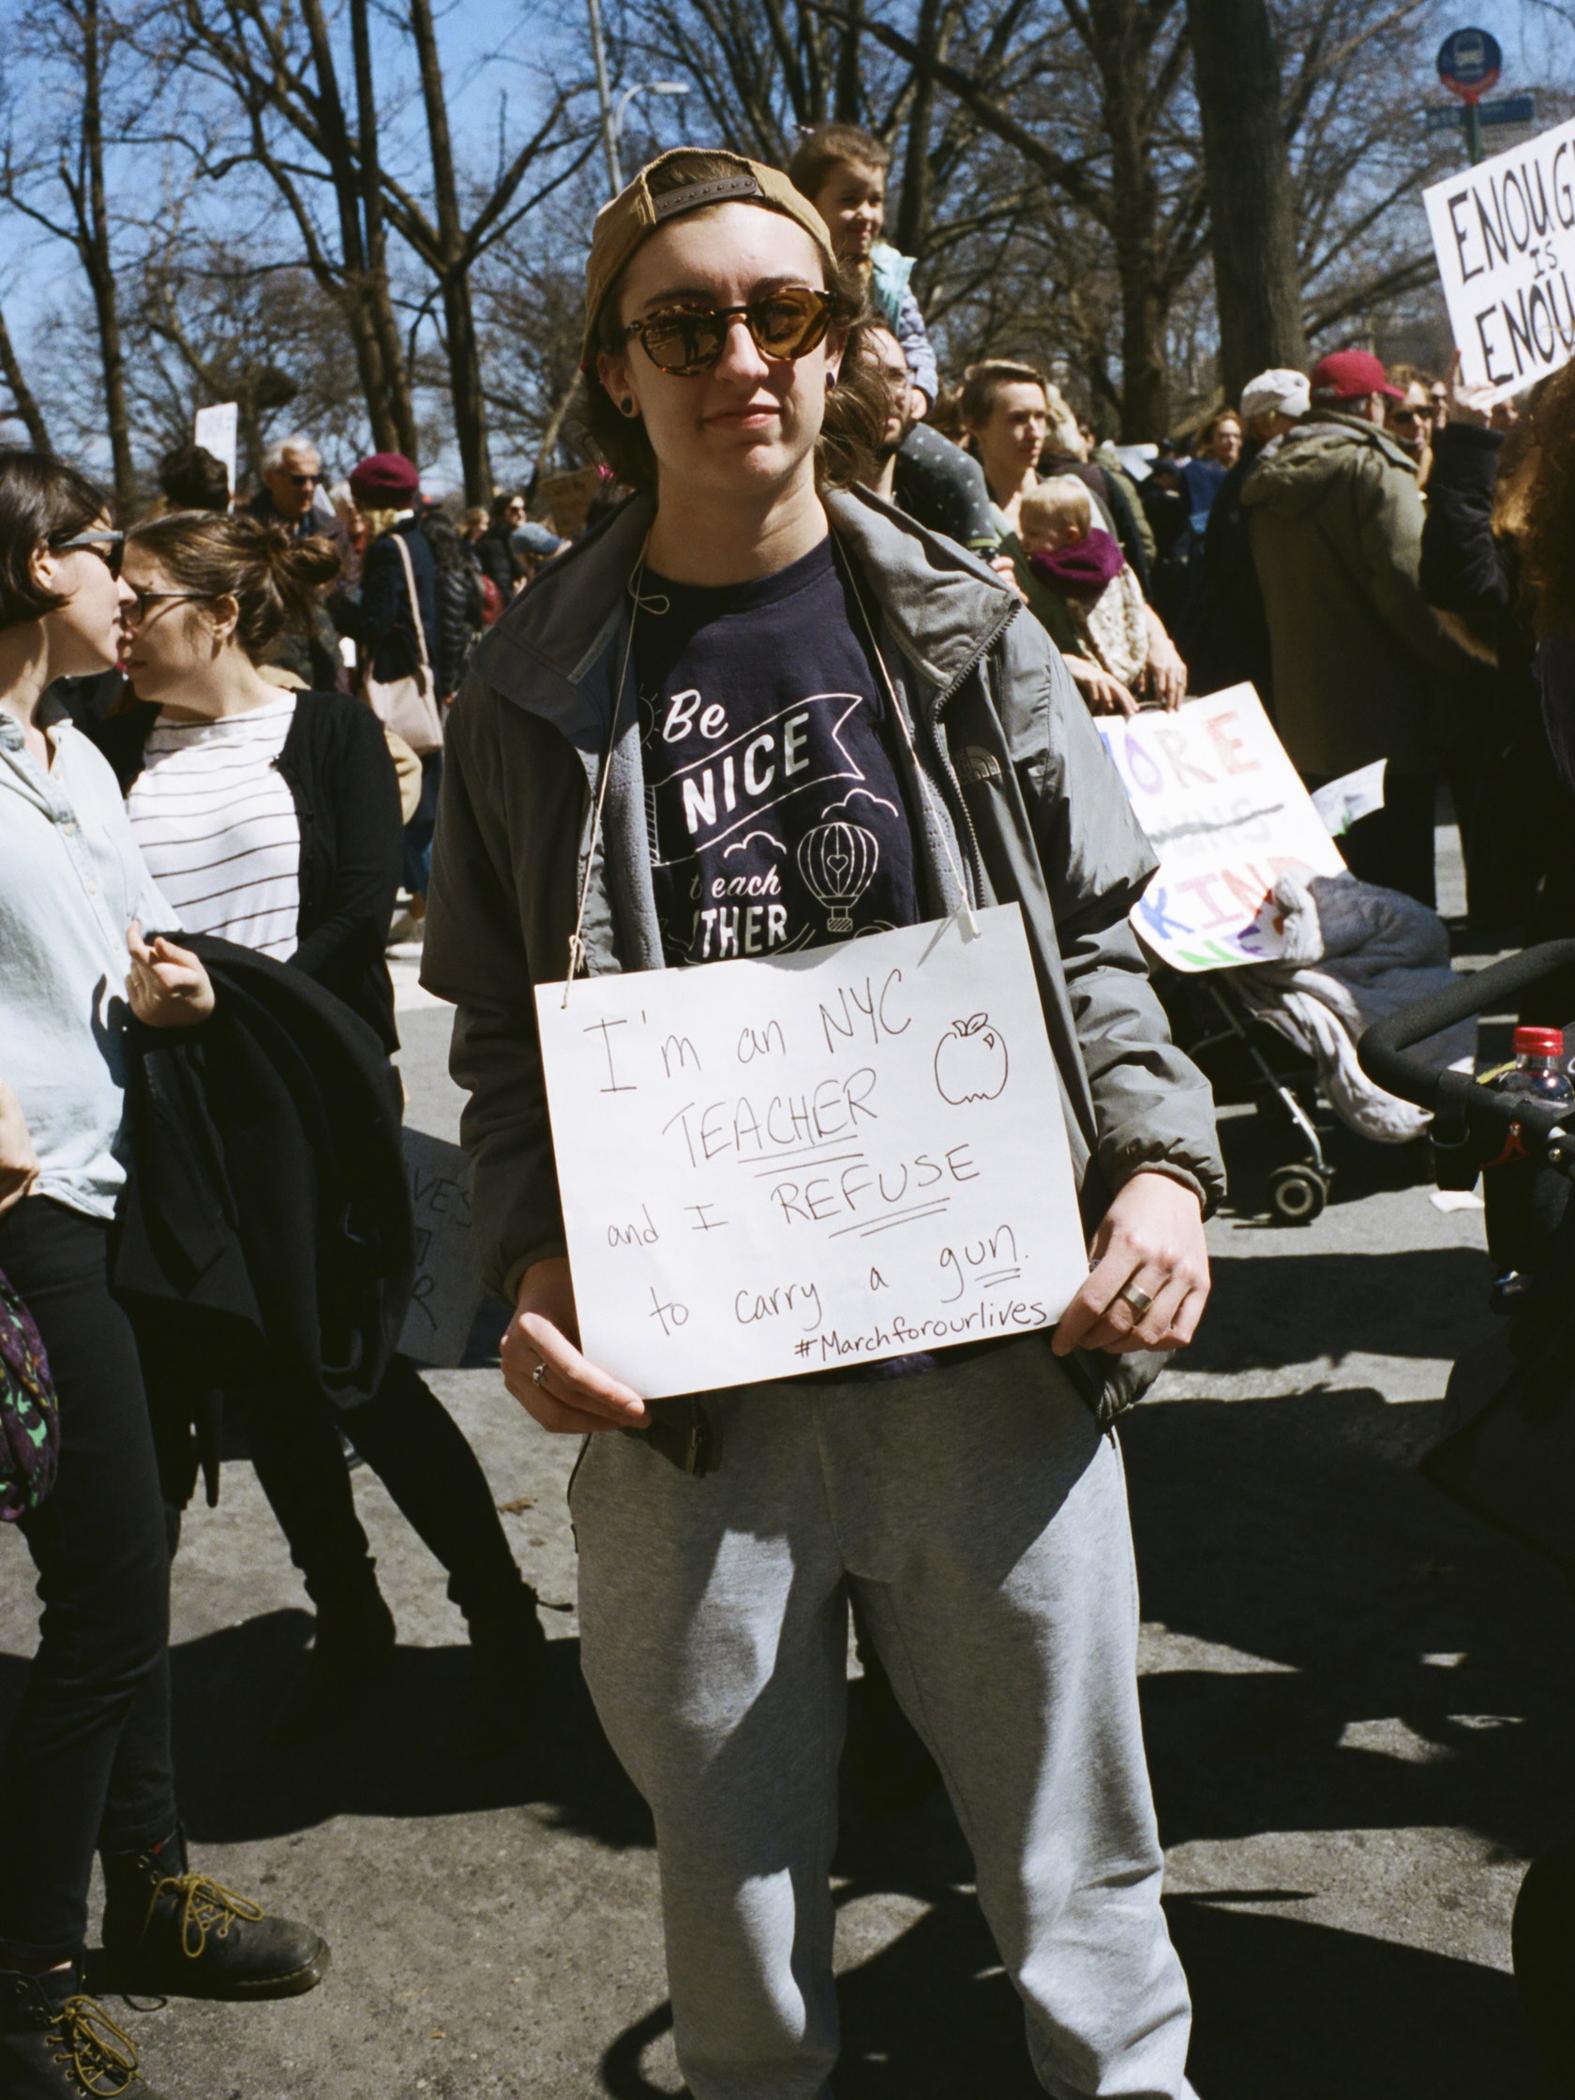 ENOUG
IS
ENOU
Be
NICE
teach
THER
ORE
GUNS
KIN
I'm an NYC
TEACHER
and I REFUSE
to carry a gun.
#Marchforourlives